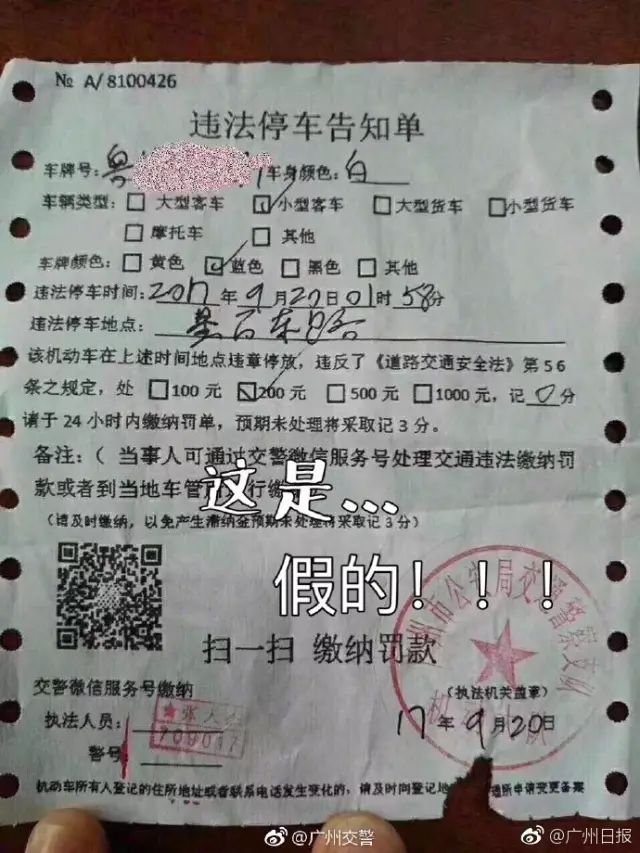 № A/8100426
违法停车告知单
车牌号:粤 车身颜色:白
车辆类型:□ 大型客车 ☑小型客车 □大型货车 □小型货车
□ 摩托车 □ 其他
车牌颜色:□ 黄色 ☑蓝色 □黑色 □其他
违法停车时间:2017年9月20日01时58分
违法停车地点:
该机动车在上述时间地点违章停放，违反了《道路交通安全法》第56
条之规定，处 □100元 ☑200元 □500元 □1000元，记0分
请于24小时内缴纳罚单，预期未处理将采取记3分。
备注:（ 当事人可通过交警微信服务号处理交通违法缴纳罚
款或者到当地车管 行缴
(请及时缴纳，以免产生滞纳金预期未处理将采取记3分)
这是...
假的！！！
扫一扫 缴纳罚款
州市公安局交通警察支队
交警微信服务号缴纳
(执法机关盖章)
执法人员:
17年9月20日
警号:
机动车所有人登记的住所地址或者联系电话发生变化的，请及时向登记地 申请变更备案
@广州交警
@广州日报